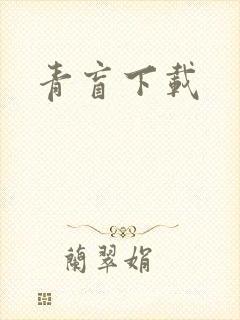 青盲下載
蘭翠娟